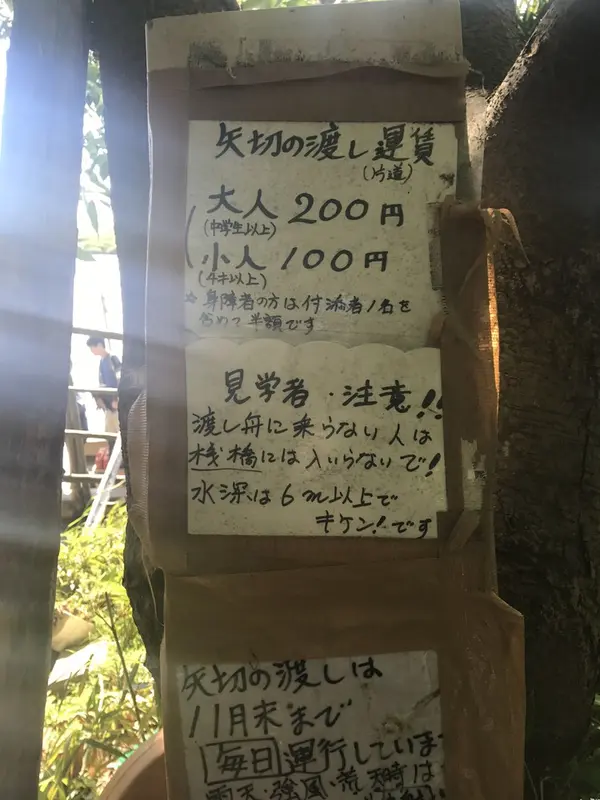 矢切の渡し運賃
(片道)
大人 200円
(中学生以上)
小人 100円
(4才以上)
☆身障者の方は付添者1名を
含めて半額です
見学者・注意!!
渡し舟に乗らない人は
桟橋には入いらないで!
水深は6m以上で
キケン!です
矢切の渡しは
11月末まで
毎日運行していま
雨天・強風・荒天時は